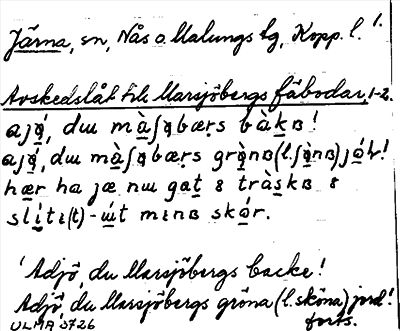 Järna, sn, Nås o Malungs tg, Kopp. l. 1.
Avskedslåt till Marsjöbergs fäbodar, 1-2.
ajọ́, dɯ mạ̀ʃɋbærs bàkʙ!
ajọ́, dɯ mạ̀ʃɋbæṛs grọ̀nʙ (l. ʃọ̀nʙ) jọ́ḷ!
hær ha jæ nɯ gaṭ 8 trạ̀skʙ 8
slị́tɩ(t)-ɯ́t mɩnʙ skọ́r.
'Adjö, du Marsjöbergs backe!
Adjö, du Marsjöbergs gröna (l. sköna) jord!
forts.
ULMA 3726